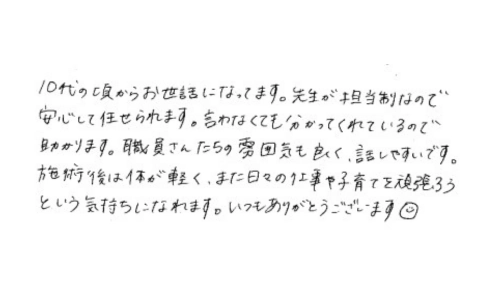 10代の頃からお世話になってます。先生が担当制なので
安心して任せられます。言わなくても分かってくれているので
助かります。職員さんたちの雰囲気も良く、話しやすいです。
施術後は体が軽く、また日々の仕事や子育てを頑張ろう
という気持ちになれます。いつもありがとうございます☺